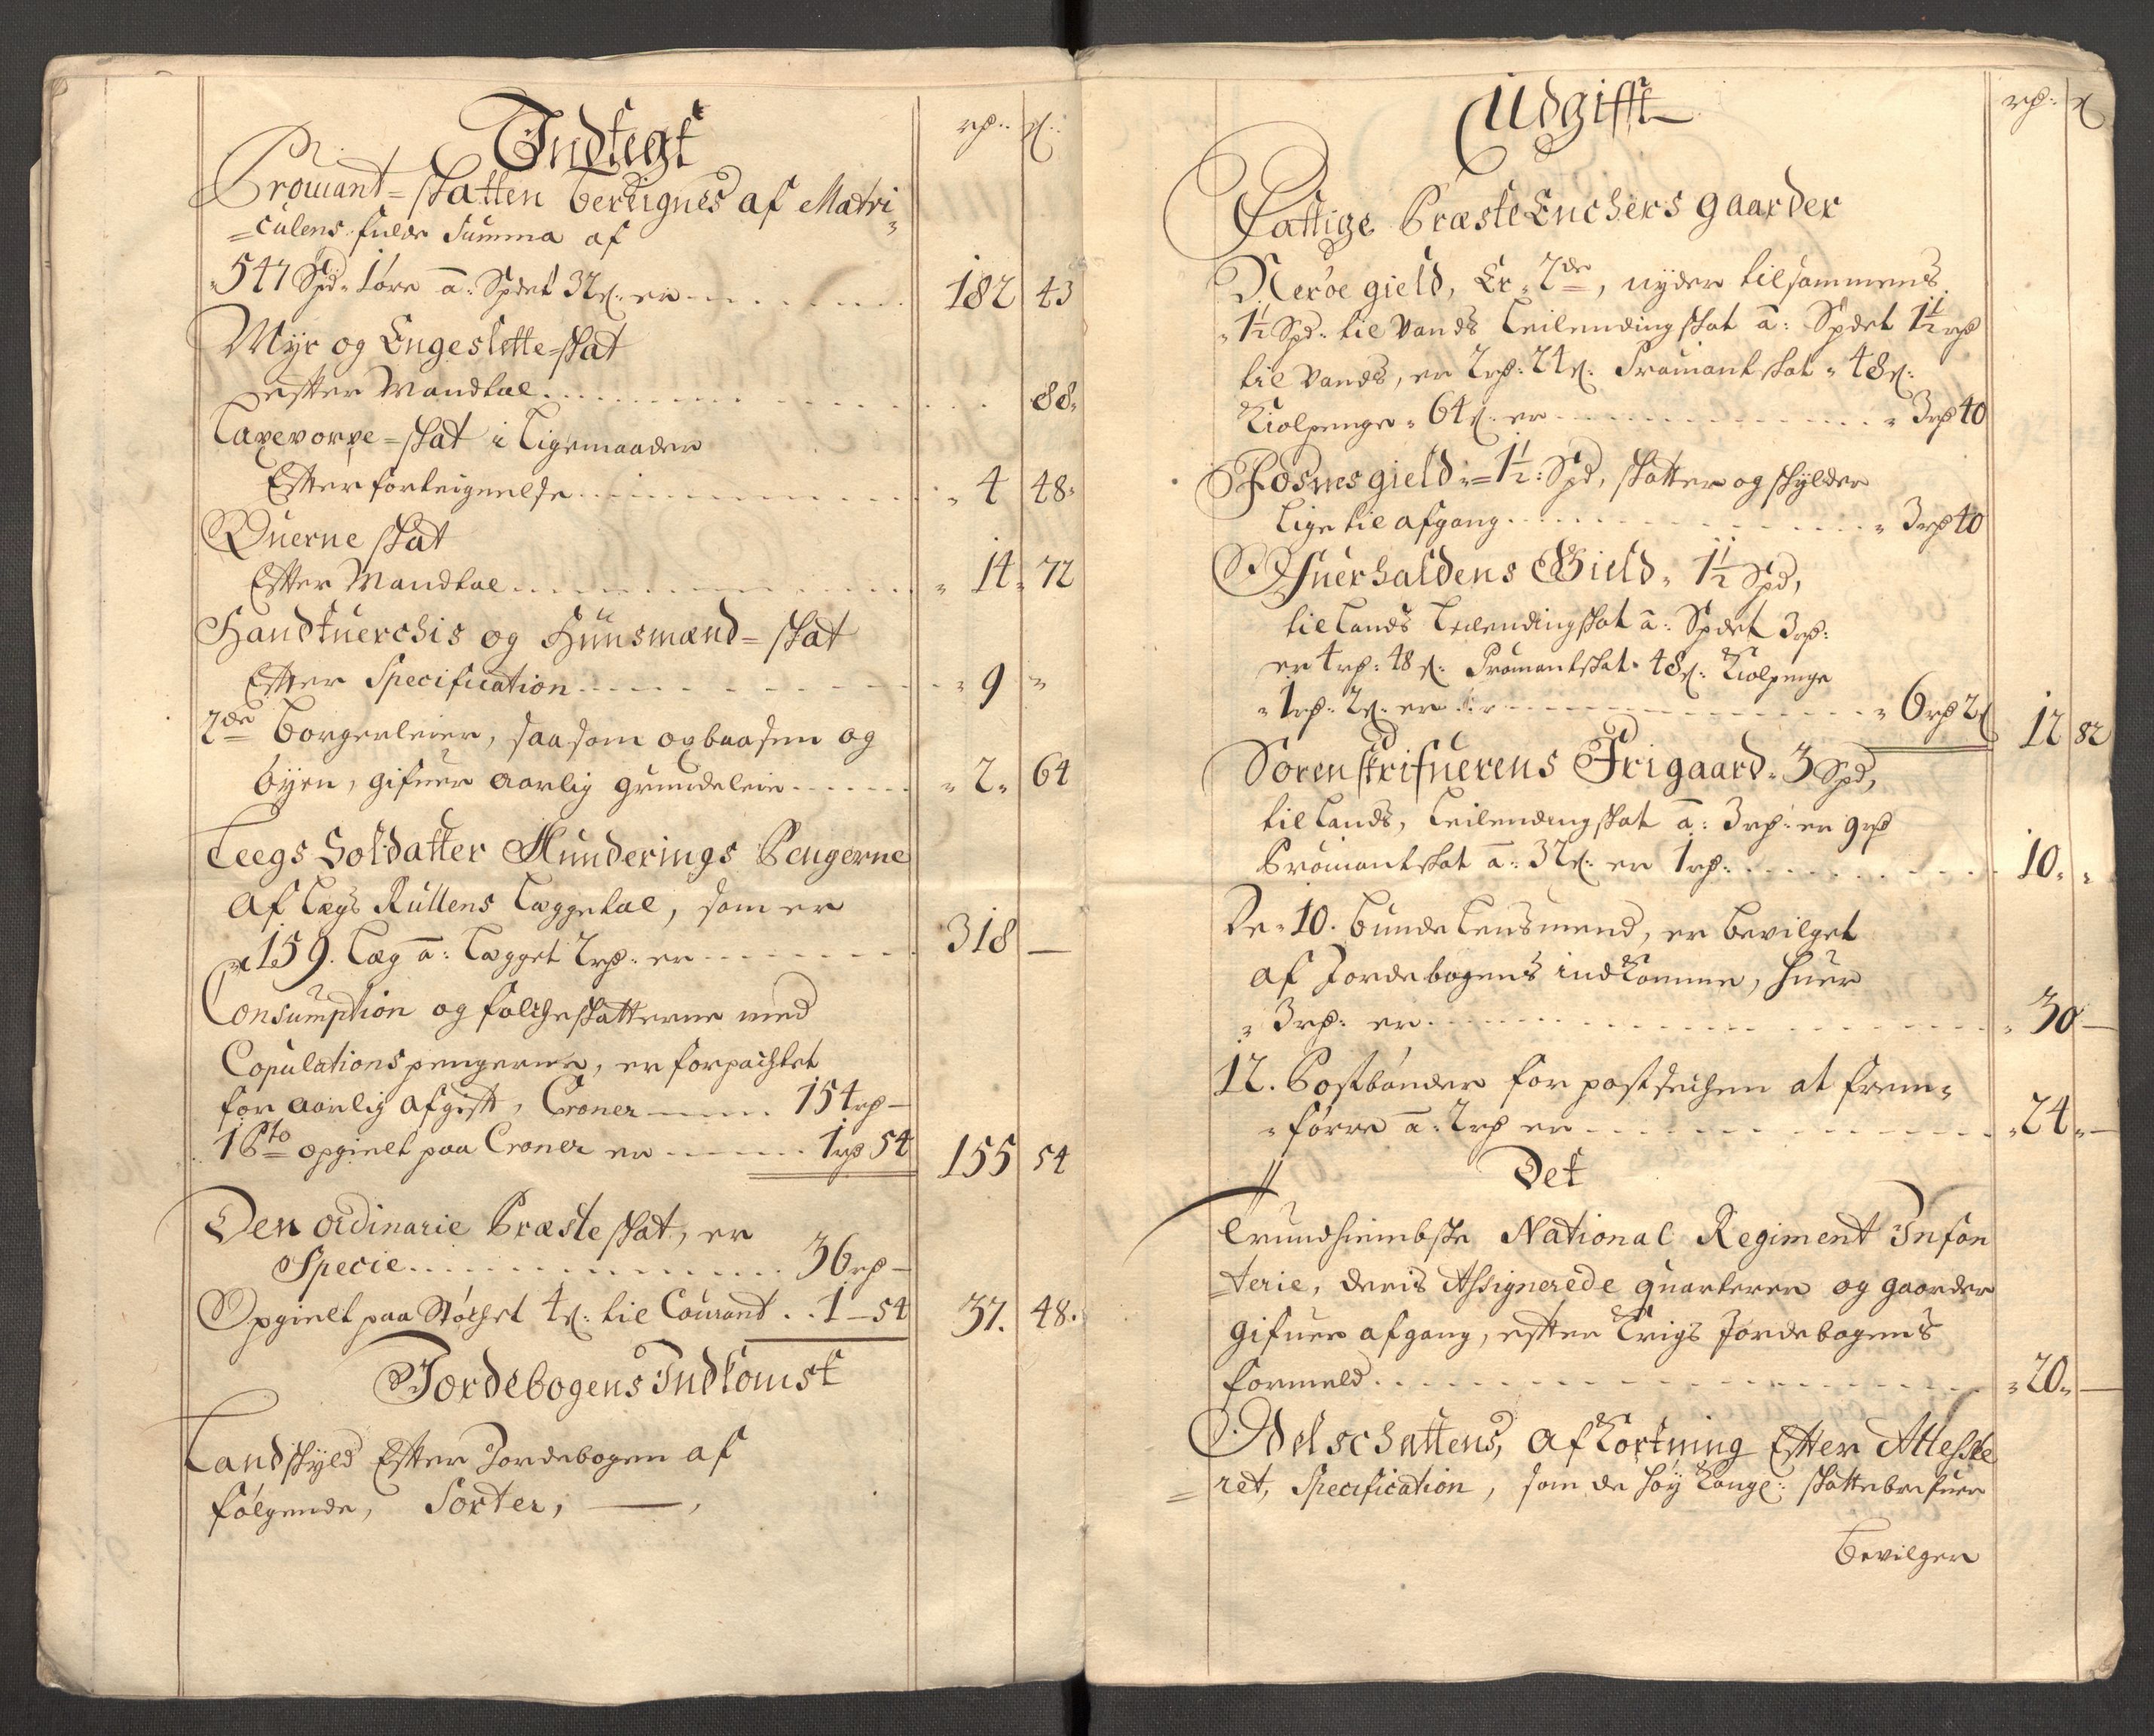 Indtegt
rd:. ß:.
Prowiant-skatten berEignes af Matri-
=culens fulde Summa af
547 Spd 1 øre à: Spdet 32 ß: er . . . . 182 43
Myr og Engeslette-skat
efter Mandtal . . . . 88
Laxevorpe-skat i Ligemaader
Efter forteignelse . . . . 4 48
Querne skat
Efter Mandtal . . . . 14 72
Handtuerchis og Huusmænd-skat
Efter Specification . . . . 9 "
2de borgerleier, saasom og
byen, gifuer aarlig grundeleie . . . . 2 64
Leegs Soldatter Munderings Pengerne
af Lægs Rullens Læggetal, som er
159. Læg à: Lægget 2 rd: er . . . . 318 —
Consumption og folcheskatterne med
Copulations pengerne, er forpachtet
for aarlig afgift, Croner —— 154 rd —
1 Pto opgielt paa Croner er . . . . 1 rd 54 155 54
Den ordinarie Præste skat, er
Specie . . . . 36 rd —
Opgielt paa Støchet 4 ß: til Courant . . 1 — 54 37. 48.
Jordebogens Indkomst
Landskyld Efter Jordebogen af
følgende, Sorter, ——,
Udgifft
rd: ß
Fattige Præste Enchers gaarder
Nerøe gield, Er 2de, nyder tilsammens
1½ Spd: til Vands Leilending skat à: Spdet 1½ rd
til Vands, er 2 rd: 24 ß: Prowiant skat 48 ß:
Kiolpenge 64 ß: er . . . . 3 rd 40
Fosnes gield = 1½: Spd, skatter og skylder
Lige til afgang . . . . 3 rd 40
Ofuerhaldens Gield 1½ Spd,
til Lands Leilending skat à: Spdet 3 rd:
er 4 rd: 48 ß: Prowiantskat 48 ß: Kiolpenge
1 rd: 2 ß: er . . . . 6 rd 2 ß 12 82
Sorenskrifuerens Frigaard 3 Spd,
til Lands, Leilending skat à: 3 rd: er 9 rd
Prowiantskat à: 32 ß: er 1 rd: . . . . 10 "
De 10. bunde Lensmend, er bevilget
af Jordebogens indkomme, huer
3 rd: er . . . . 30 —
12. Postbønder for postseichen at frem-
=førre à: 2 rd er . . . . 24 —
Det
Trundhiembske National Regiment Infan
=terie, deris Assignerede quarterer og gaarder
gifuer afgang, efter Krigs Jordebogens
formeld . . . . 20 —
Odelschattens, afkortning Efter Atteste
=ret, Specification, som de høy Kongl: skattebrefuer
bevilger